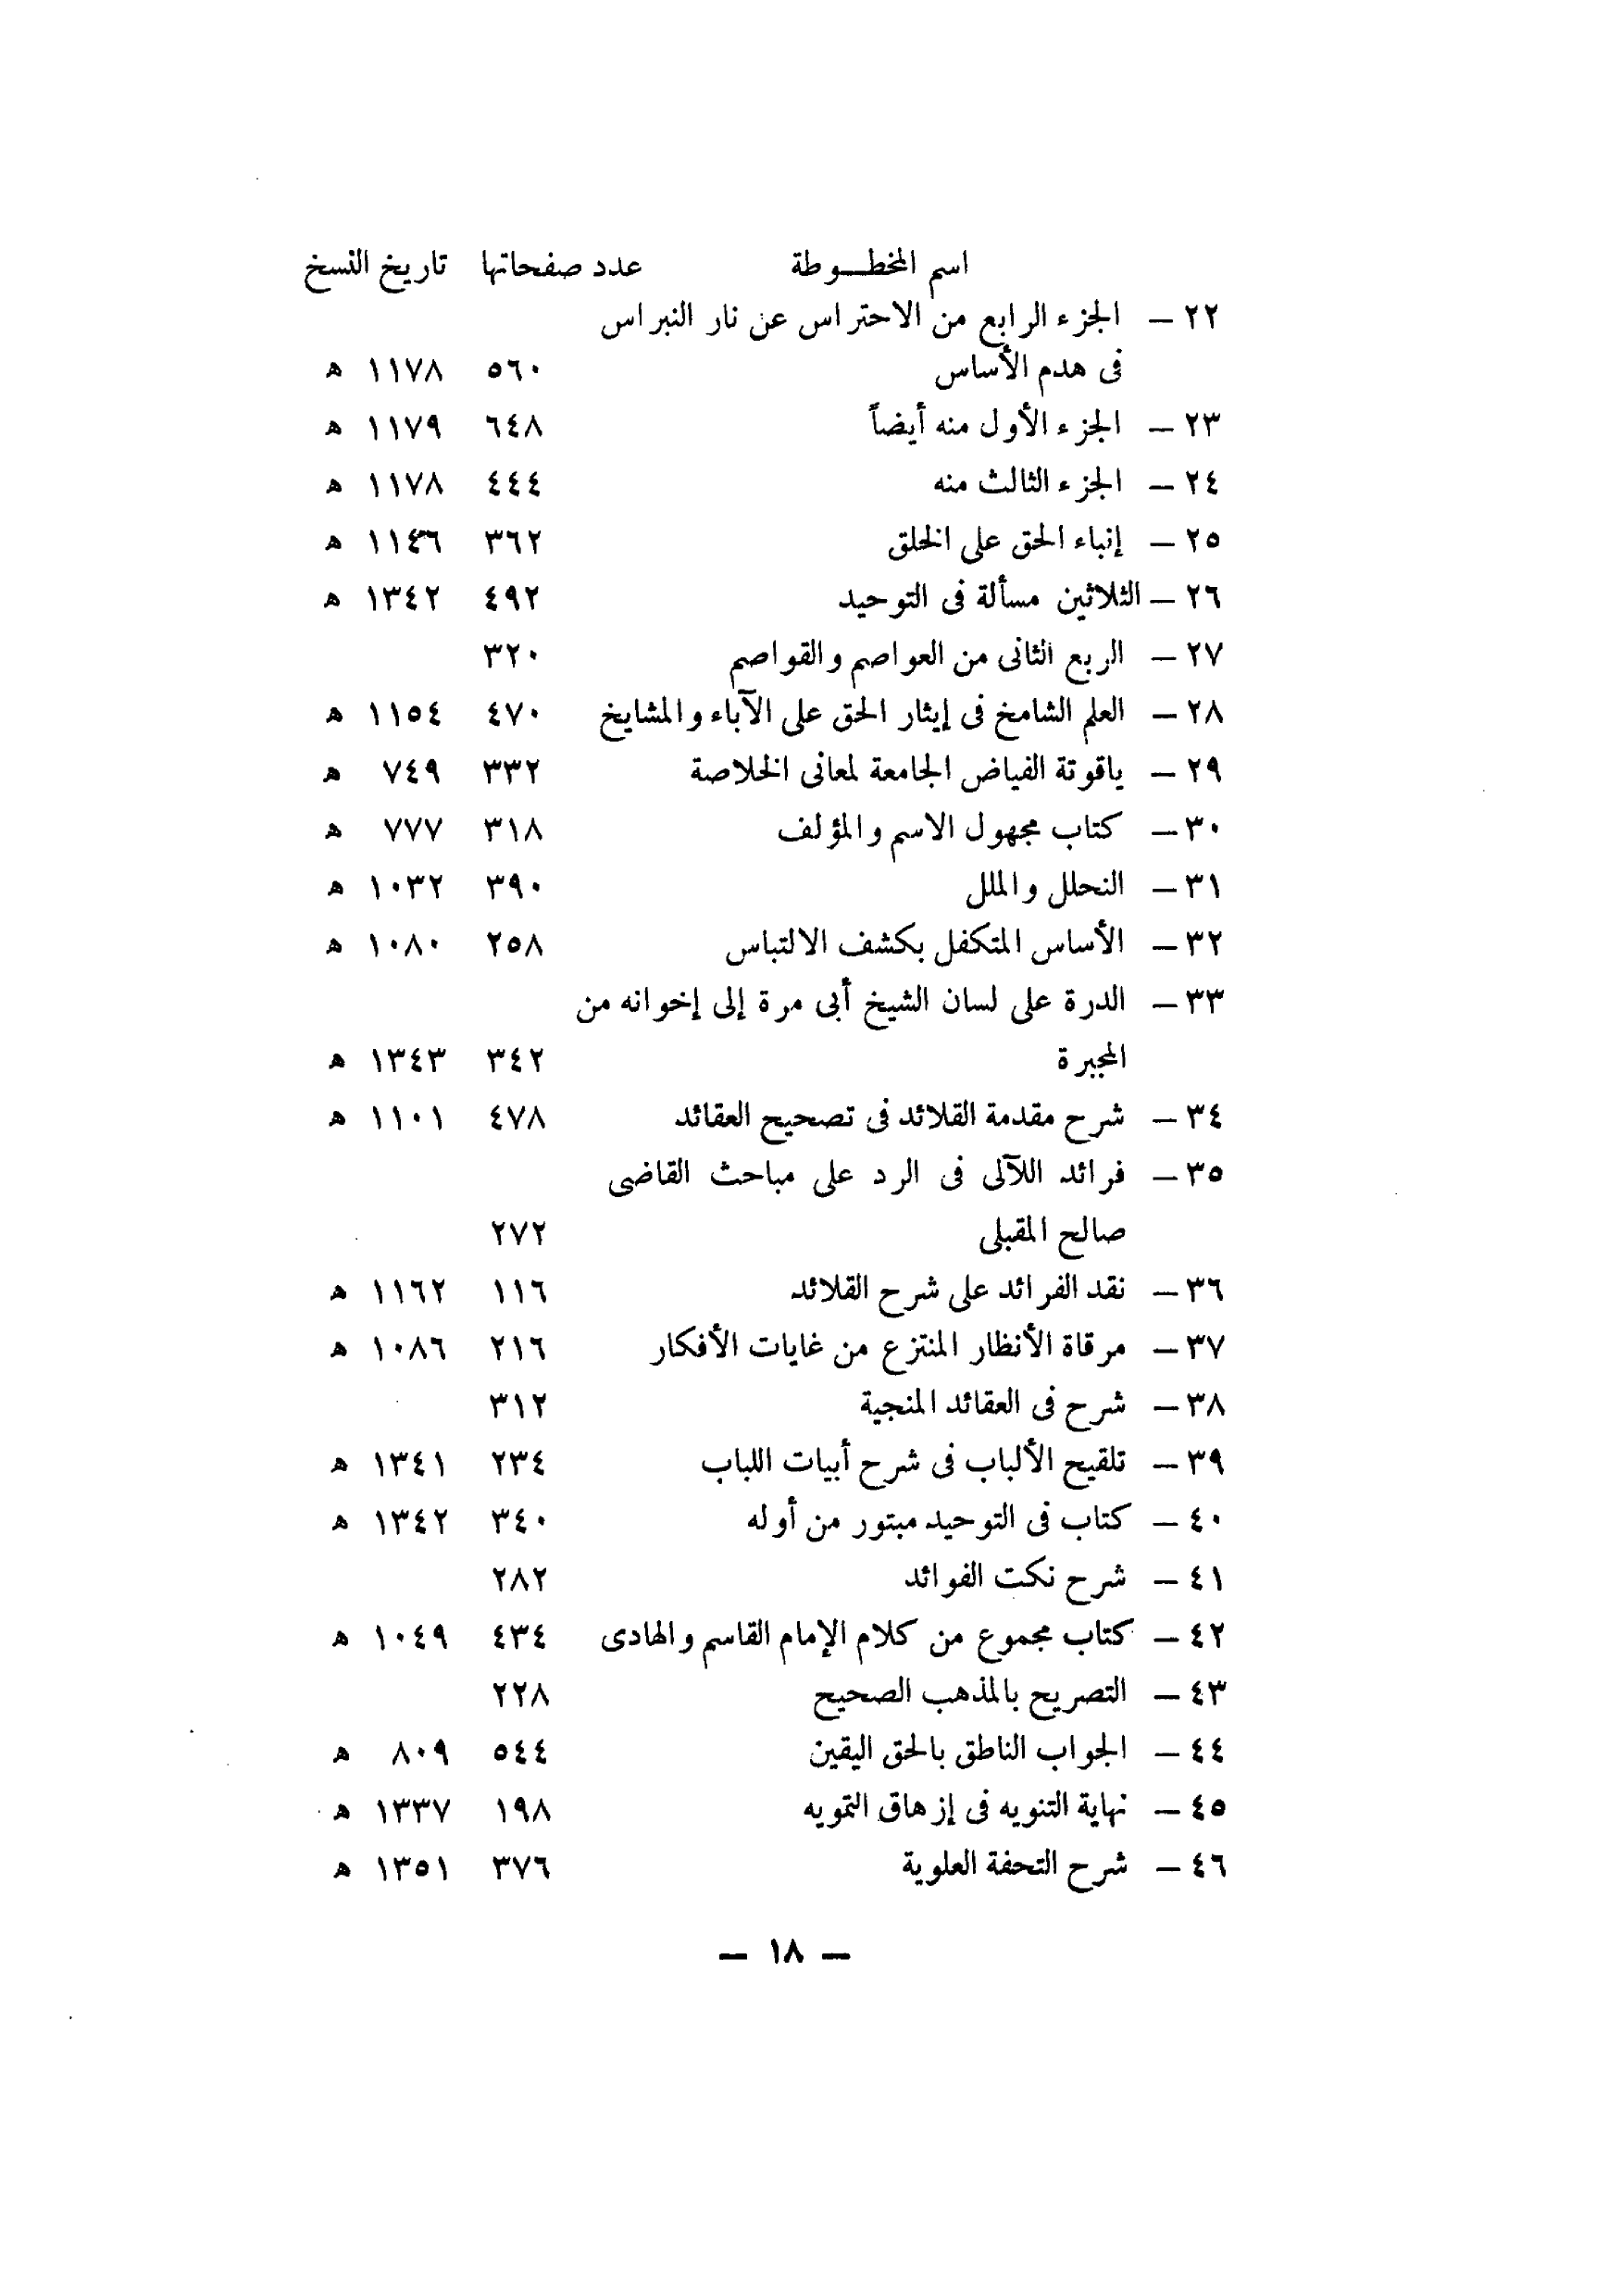 اسم المخطـوطة عدد صفحاتها تاريخ النسخ
٢٢ — الجزء الرابع من الاحتراس عن نار النبراس
فى هدم الأساس ٥٦٠ ١١٧٨ ه
٢٣ — الجزء الأول منه أيضاً ٦٤٨ ١١٧٩ ه
٢٤ — الجزء الثالث منه ٤٤٤ ١١٧٨ ه
٢٥ — إنباء الحق على الخلق ٣٦٢ ١١٤٦ ه
٢٦ — الثلاثين مسألة فى التوحيد ٤٩٢ ١٣٤٢ ه
٢٧ — الربع الثانى من العواصم والقواصم ٣٢٠
٢٨ — العلم الشامخ فى إيثار الحق على الآباء والمشايخ ٤٧٠ ١١٥٤ ه
٢٩ — ياقوتة الفياض الجامعة لمعانى الخلاصة ٣٣٢ ٧٤٩ ه
٣٠ — كتاب مجهول الاسم والمؤلف ٣١٨ ٧٧٧ ه
٣١ — النحلل والملل ٣٩٠ ١٠٣٢ ه
٣٢ — الأساس المتكفل بكشف الالتباس ٢٥٨ ١٠٨٠ ه
٣٣ — الدرة على لسان الشيخ أبى مرة إلى إخوانه من
المجبرة ٣٤٢ ١٣٤٣ ه
٣٤ — شرح مقدمة القلائد فى تصحيح العقائد ٤٧٨ ١١٠١ ه
٣٥ — فرائد اللآلى فى الرد على مباحث القاضى
صالح المقبلى ٢٧٢
٣٦ — نقد الفرائد على شرح القلائد ١١٦ ١١٦٢ ه
٣٧ — مرقاة الأنظار المنتزع من غايات الأفكار ٢١٦ ١٠٨٦ ه
٣٨ — شرح فى العقائد المنجية ٣١٢
٣٩ — تلقيح الألباب فى شرح أبيات اللباب ٢٣٤ ١٣٤١ ه
٤٠ — كتاب فى التوحيد مبتور من أوله ٣٤٠ ١٣٤٢ ه
٤١ — شرح نكت الفوائد ٢٨٢
٤٢ — كتاب مجموع من كلام الإمام القاسم والهادى ٤٣٤ ١٠٤٩ ه
٤٣ — التصريح بالمذهب الصحيح ٢٢٨
٤٤ — الجواب الناطق بالحق اليقين ٥٤٤ ٨٠٩ ه
٤٥ — نهاية التنويه فى إزهاق التمويه ١٩٨ ١٣٣٧ ه
٤٦ — شرح التحفة العلوية ٣٧٦ ١٣٥١ ه
— ١٨ —